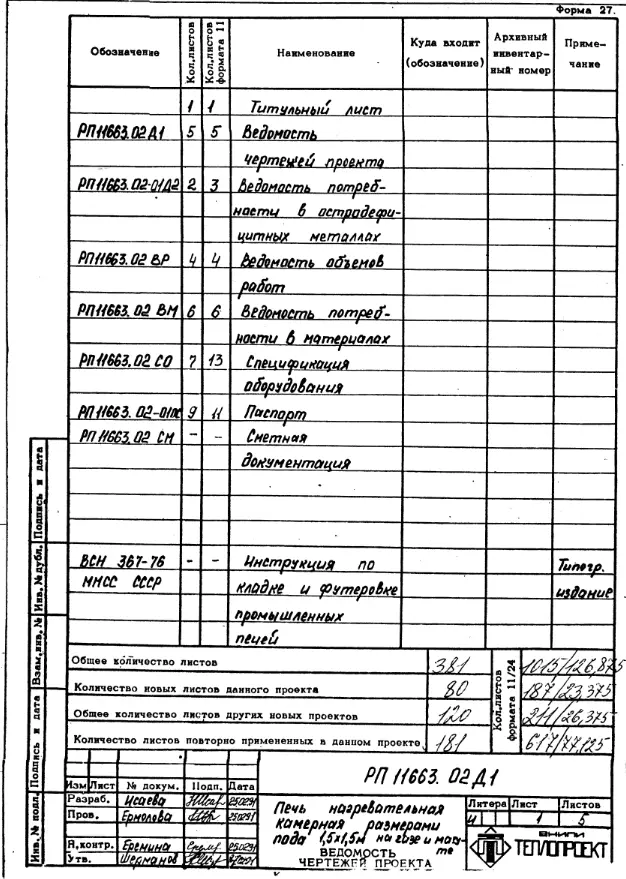 Форма 27.
Обозначение Кол.листов Кол.листов формата 11 Наименование Куда входит (обозначение) Архивный инвентар- ный номер Приме- чание
1 1 Титульный лист
РП11663.02Д1 5 5 Ведомость
чертежей проекта
РП11663.02-01Д2 2 3 Ведомость потреб-
ности в остродефи-
цитных металлах
РП11663.02 ВР 4 4 Ведомость объемов
работ
РП11663.02 ВМ 6 6 Ведомость потреб-
ности в материалах
РП11663.02 СО 7 13 Спецификация
оборудования
РП11663.02-01ПС 9 11 Паспорт
РП11663.02 СМ - - Сметная
документация
ВСН 367-76 - - Инструкция по Типогр.
ММСС СССР кладке и футеровке издание
промышленных
печей
Общее количество листов 381 1015/126,875
Количество новых листов данного проекта 80 187/23,375
Общее количество листов других новых проектов 120 211/26,375
Количество листов повторно примененных в данном проекте 181 617/77,125
Кол.листов формата 11/24
Инв.№ подл. Подпись и дата Взам.инв.№ Инв.№ дубл. Подпись и дата
РП 11663.02Д1
Изм Лист № докум. Подп. Дата
Разраб. Исаева 250291
Пров. Ермолова 250291
Н.контр. Еремина 250291
Утв. Шерманов
Печь нагревательная
камерная размерами
пода 1,5х1,5м на газе и мазу-
те
ВЕДОМОСТЬ
ЧЕРТЕЖЕЙ ПРОЕКТА
Литера Лист Листов
И 1 5
ВНИПИ
ТЕПЛОПРОЕКТ